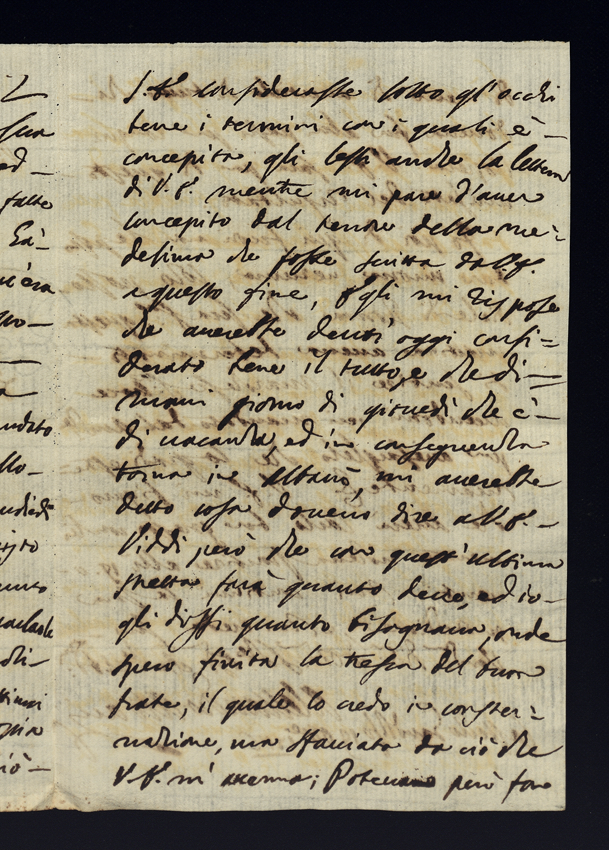 S. Sa. considerasse sotto gl'occhi
bene i termini con i quali è
concepita, gli lessi anche la lettera
di V.S. mentre mi pare d'aver
concepito dal tenore della me-
desima che fosse scritta da V.S.
a questo fine, egli mi rispose
che averebbe dentr'oggi consi-
derato bene il tutto, e che di-
mani giorno di giovedì che è
di vacanza, ed in conseguenza
torna in Albano, mi averebbe
detto cosa dovevo dire a V.S.
Viddi però che con quest'ultima
farà quanto deve, ed io
gli dissi quanto bisognava, onde
spero finita la del buon
frate, il quale lo credo in conster-
nazione, ma da ciò che
V.S. m'accenna; Potevano però fare
L
ed
falte
Eà-
andato
llo-